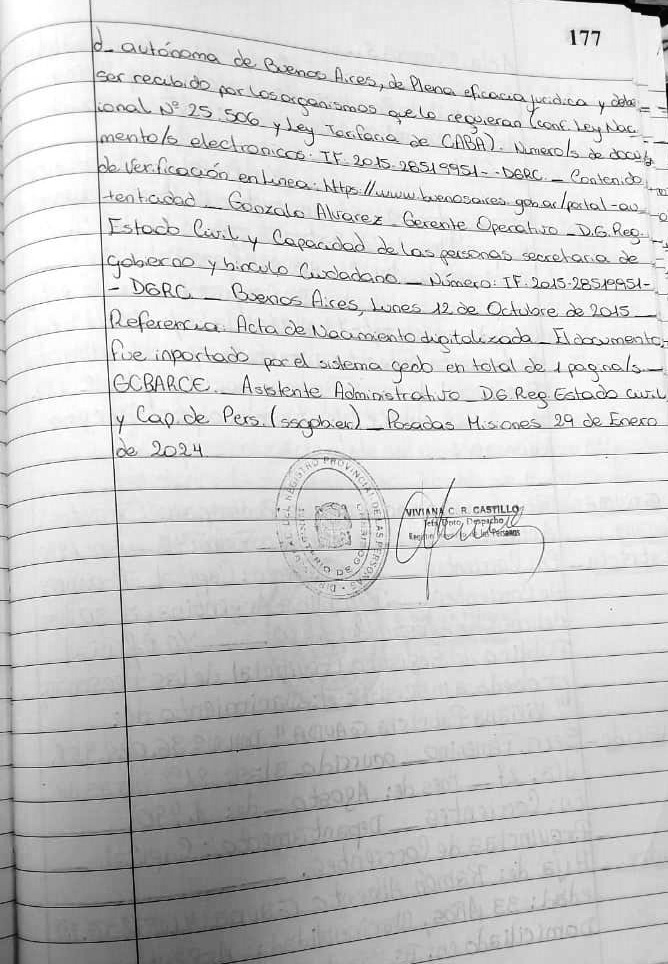 177
d_ autónoma de Buenos Aires, de Plena eficacia jurídica y debe=
ser recibido por los organismos que lo requieran (conf. Ley Nac
ional Nº 25.506 y Ley Tarifaria de CABA). Numero/s de docu/
mento/s electronicos: IF-2015-28519951--DGRC_ Contenido
de Verificación en linea: https://www.buenosaires.gob.ar/portal-au
tenticidad_ Gonzalo Alvarez_ Gerente Operativo_D.G.Reg.
Estado Civil y Capacidad de las personas secretaria de
gobierno y hinculo Ciudadano_ Número: IF-2015-28519951-
- DGRC_ Buenos Aires, Lunes 12 de Octubre de 2015
Referencia: Acta de Nacimiento digitalizada_ El documento
fue inportado por el sistema gedo en total de 1 pagina/s_
GCBARCE_ Asistente Administrativo_DG.Reg.Estado civil
y Cap.de Pers.(ssgobier)_ Posadas Misiones 29 de Enero
de 2024
REGISTRO PROVINCIAL DE LAS PERSONAS
VIVIANA C. R. CASTILLO
Jefa Dpto. Despacho
de las Personas